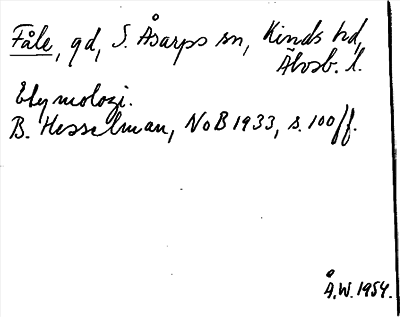 Fåle, gd, S. Åsarps sn, Kinds hd,
Älvsb. l.
Etymologi.
B. Hesselman, NoB 1933, s. 100 ff.
Å.W. 1954.